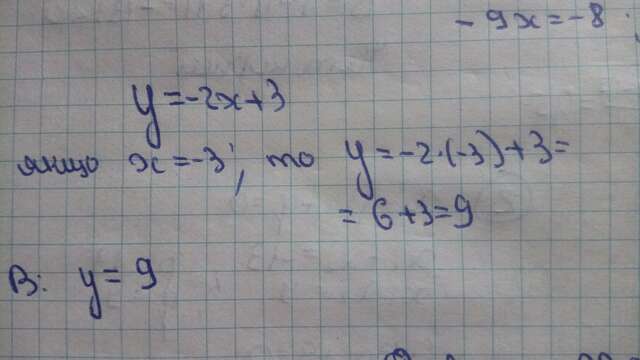 - 9x = -8
y = -2x+3
якщо x = -3, то y = -2·(-3)+3=
= 6+3=9
В: y = 9